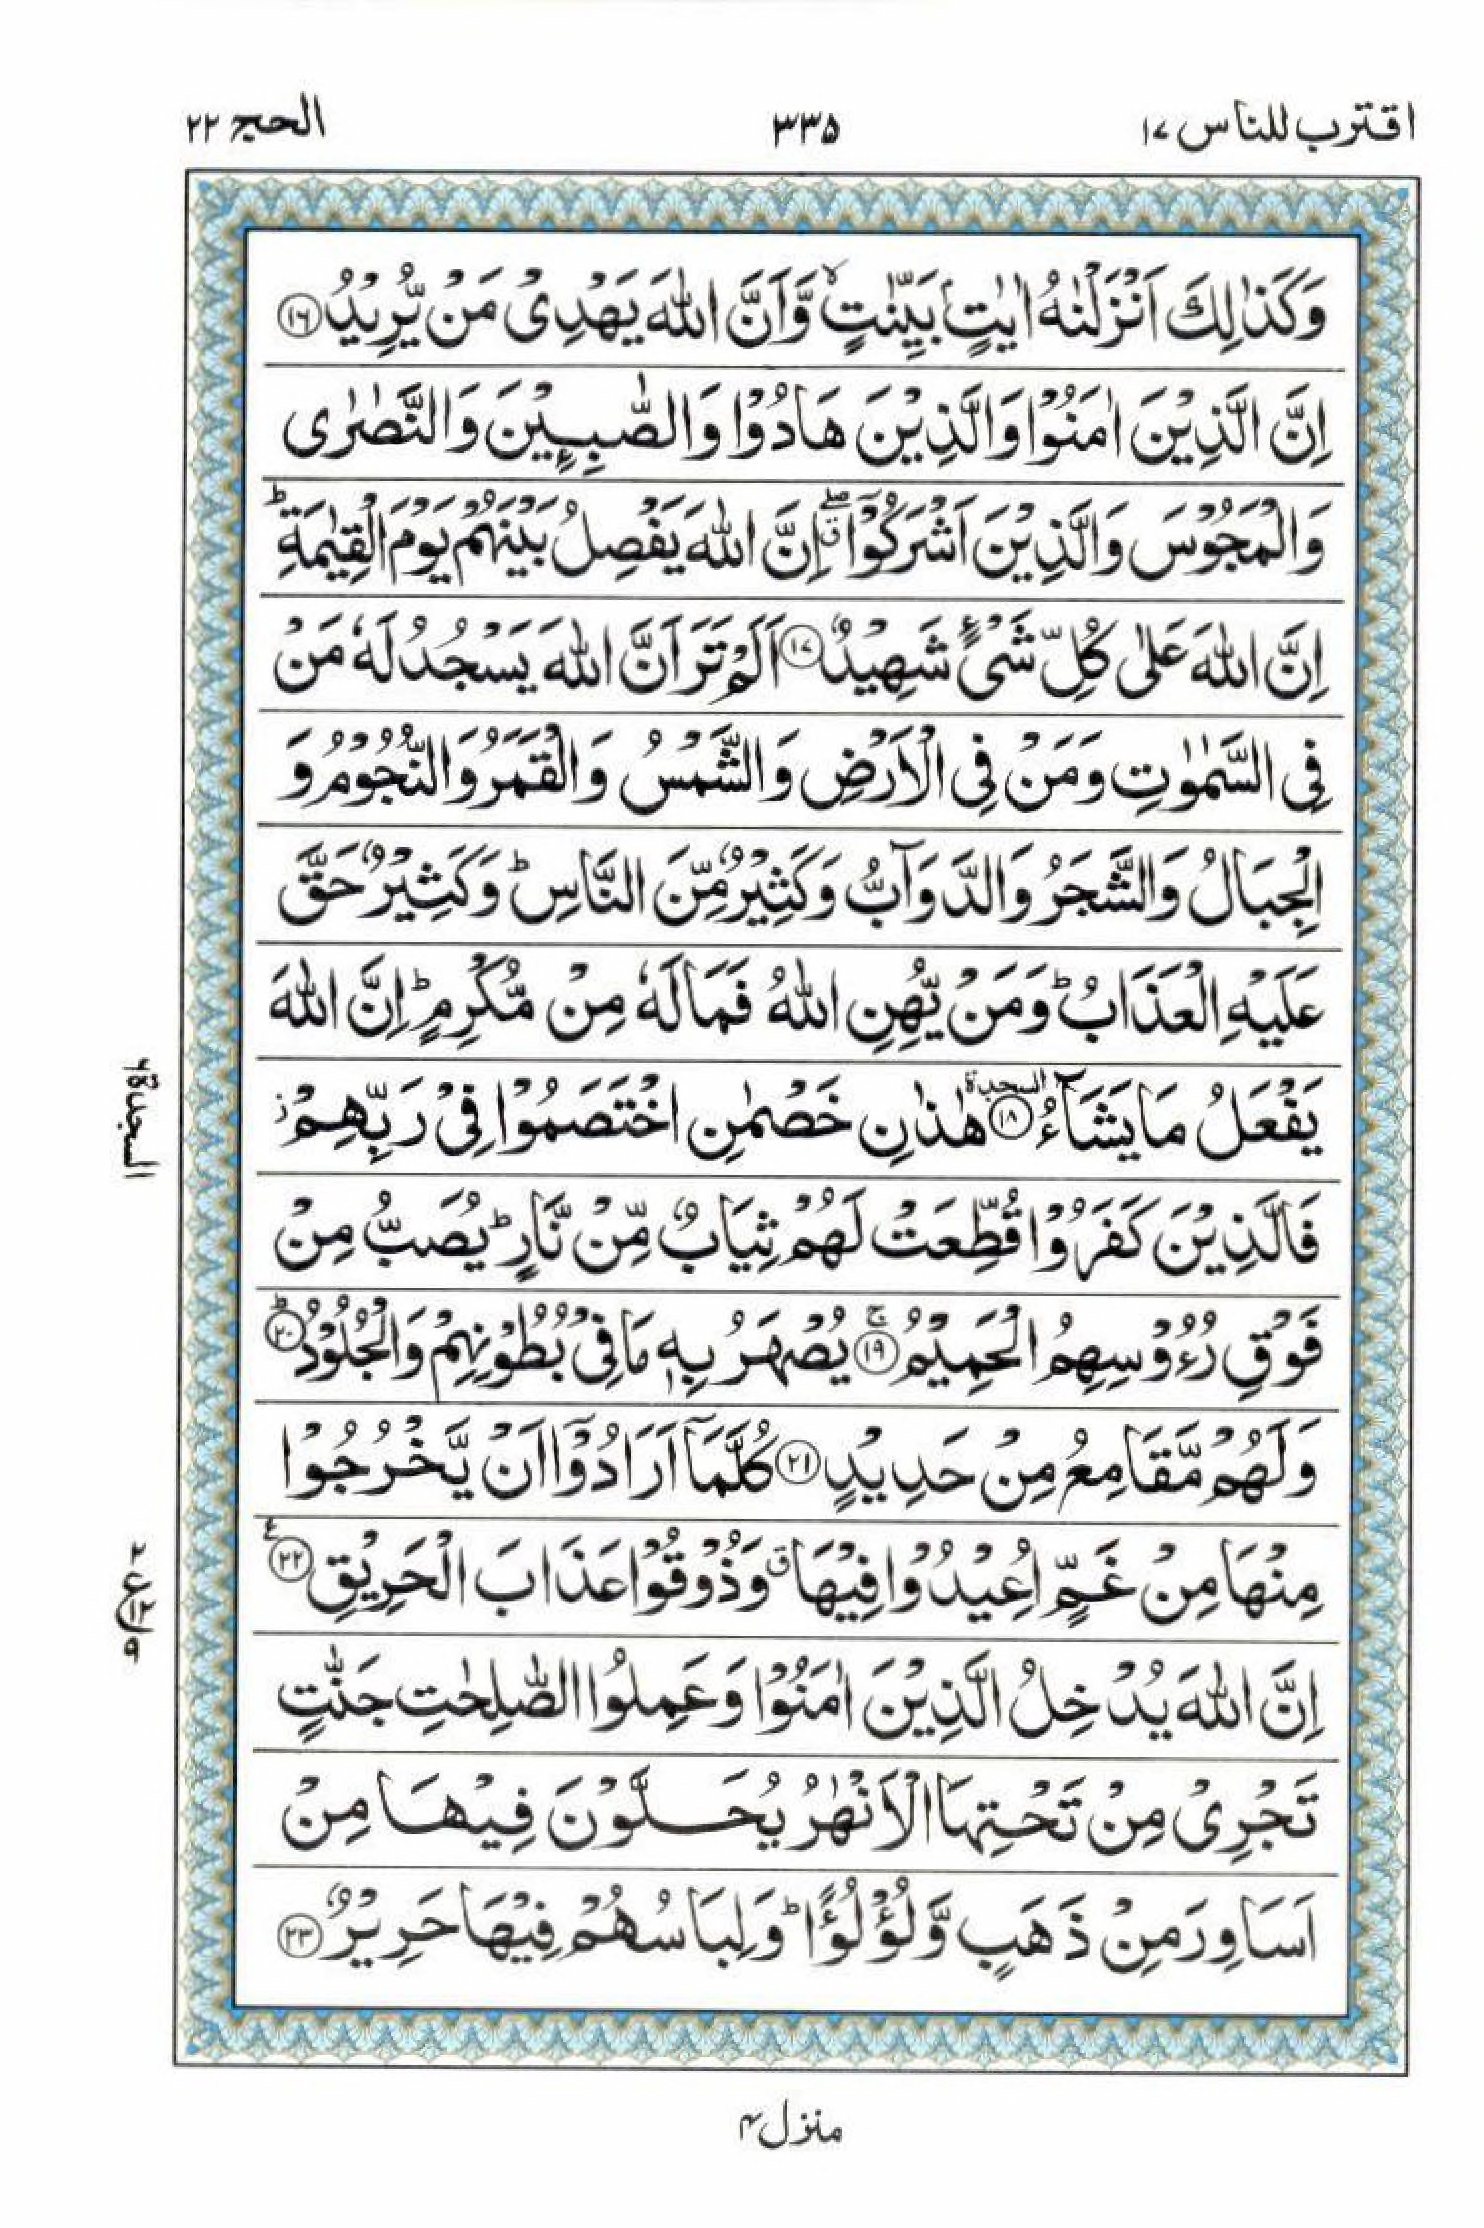 اقترب للناس ١٧ ٣٣٥ الحج ٢٢
وَكَذٰلِكَ اَنْزَلْنٰهُ اٰيٰتٍۭ بَيِّنٰتٍ ۙ وَّاَنَّ اللّٰهَ يَهْدِىْ مَنْ يُّرِيْدُ ⑯
اِنَّ الَّذِيْنَ اٰمَنُوْا وَالَّذِيْنَ هَادُوْا وَالصّٰبِـِٕيْنَ وَالنَّصٰرٰى
وَالْمَجُوْسَ وَالَّذِيْنَ اَشْرَكُوْۤا ۖ ق اِنَّ اللّٰهَ يَفْصِلُ بَيْنَهُمْ يَوْمَ الْقِيٰمَةِ ؕ
اِنَّ اللّٰهَ عَلٰى كُلِّ شَىْءٍ شَهِيْدٌ ⑰ اَلَمْ تَرَ اَنَّ اللّٰهَ يَسْجُدُ لَهٗ مَنْ
فِى السَّمٰوٰتِ وَمَنْ فِى الْاَرْضِ وَالشَّمْسُ وَالْقَمَرُ وَالنُّجُوْمُ وَ
الْجِبَالُ وَالشَّجَرُ وَالدَّوَآبُّ وَكَثِيْرٌ مِّنَ النَّاسِ ؕ وَكَثِيْرٌ حَقَّ
عَلَيْهِ الْعَذَابُ ؕ وَمَنْ يُّهِنِ اللّٰهُ فَمَا لَهٗ مِنْ مُّكْرِمٍ ؕ اِنَّ اللّٰهَ
يَفْعَلُ مَا يَشَآءُ ⑱ السجدة هٰذٰنِ خَصْمٰنِ اخْتَصَمُوْا فِىْ رَبِّهِمْ ز
فَالَّذِيْنَ كَفَرُوْا قُطِّعَتْ لَهُمْ ثِيَابٌ مِّنْ نَّارٍ ؕ يُصَبُّ مِنْ
فَوْقِ رُءُوْسِهِمُ الْحَمِيْمُ ۚ ⑲ يُصْهَرُ بِهٖ مَا فِىْ بُطُوْنِهِمْ وَالْجُلُوْدُ ؕ ⑳
وَلَهُمْ مَّقَامِعُ مِنْ حَدِيْدٍ ㉑ كُلَّمَاۤ اَرَادُوْۤا اَنْ يَّخْرُجُوْا
مِنْهَا مِنْ غَمٍّ اُعِيْدُوْا فِيْهَا ق وَذُوْقُوْا عَذَابَ الْحَرِيْقِ ㉒ ع
اِنَّ اللّٰهَ يُدْخِلُ الَّذِيْنَ اٰمَنُوْا وَعَمِلُوا الصّٰلِحٰتِ جَنّٰتٍ
تَجْرِىْ مِنْ تَحْتِهَا الْاَنْهٰرُ يُحَلَّوْنَ فِيْهَا مِنْ
اَسَاوِرَ مِنْ ذَهَبٍ وَّلُؤْلُؤًا ؕ وَلِبَاسُهُمْ فِيْهَا حَرِيْرٌ ㉓
السجدة ٦
ع
منزل ٤